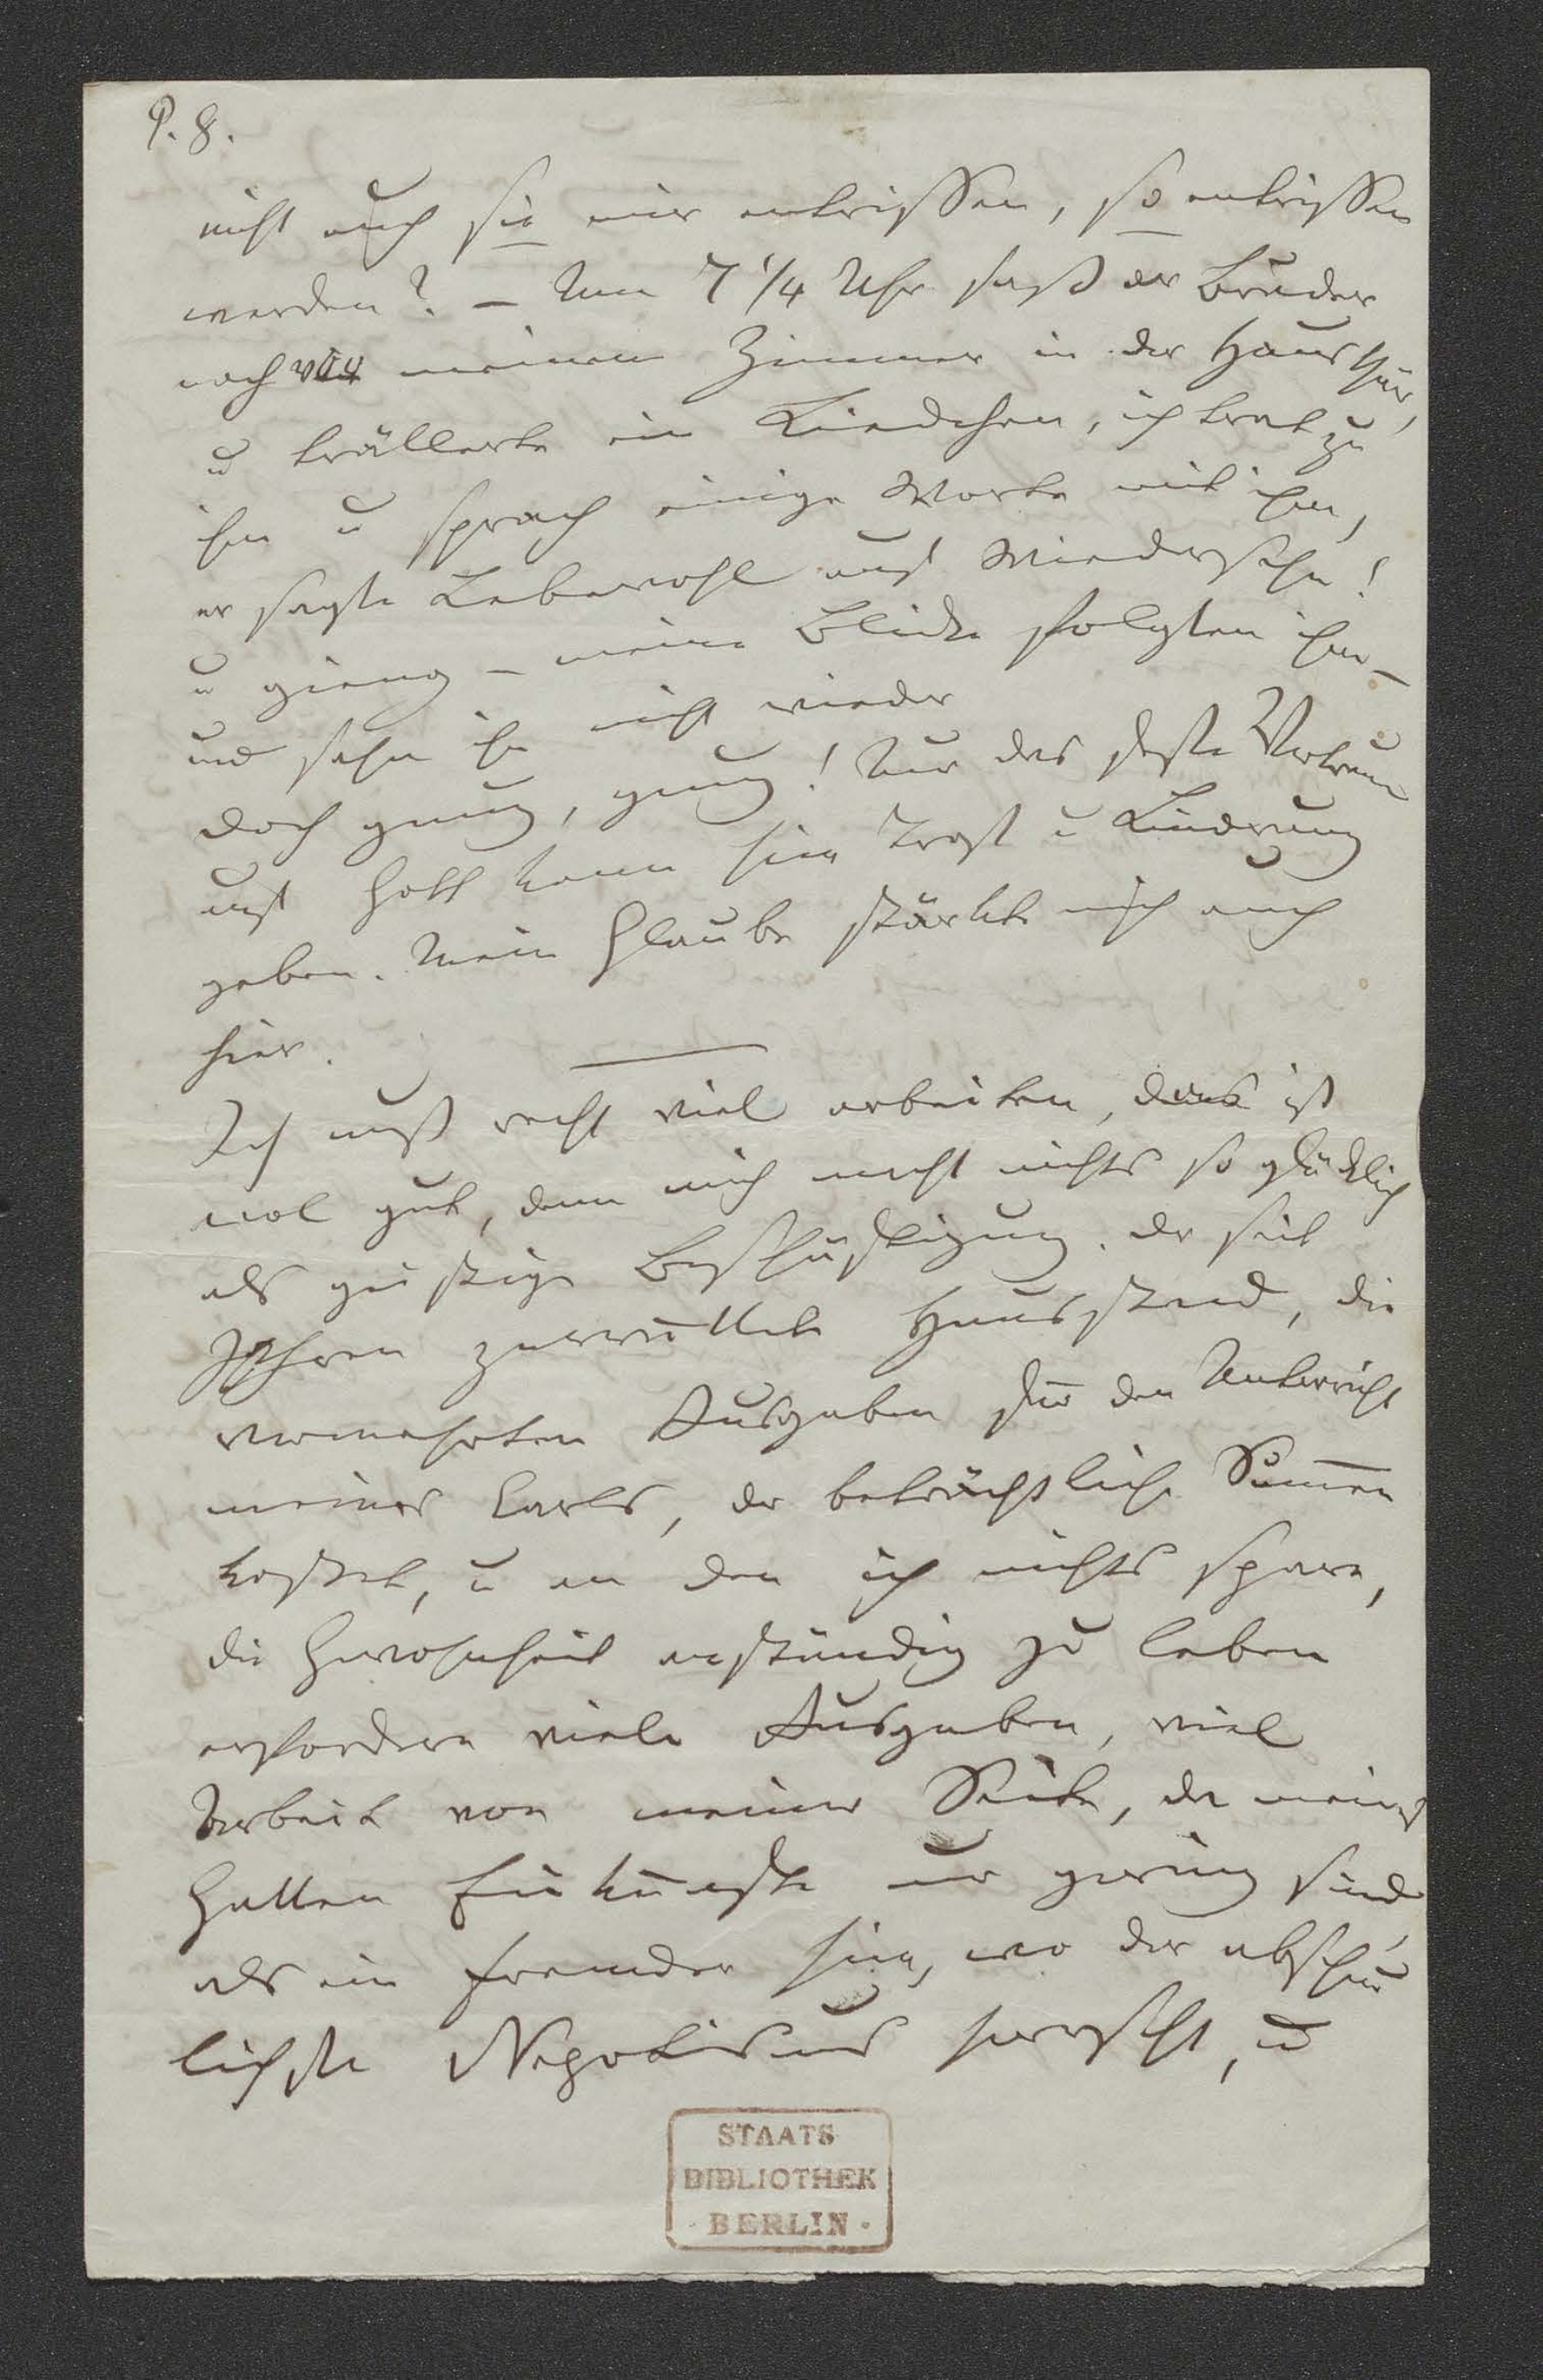 P. 8.
nicht auch sie mir entrissen, so entrissen
werden? – Um 7 1/4 Uhr saß der Bruder
noch vor meinem Zimmer in der Hausthür,
u trällerte ein Liedchen, ich trat zu
ihm u sprach einige Worte mit ihm,
er sagte Lebewohl auf Wiedersehn!
u gieng – meine Blicke folgten ihm –
und sahn ihn nicht wieder
doch gnug, gnug! Nur das feste Vertraun
auf Gott kann hier Trost u Lindrung
geben. Mein Glaube stärkte mich auch
hier.
Ich muß recht viel arbeiten, das ist
wol gut, denn mich macht nichts so glücklich
als geistige Beschäftigung. Der seit
Jahren zerrüttete Hausstand, die
vermehrten Ausgaben für den Unterricht
meines Carls, der beträchtliche Summen
kostet, u an den ich nichts spare,
die Gewohnheit anständig zu leben
erfordern viele Ausgaben, viel
Arbeit von meiner Seite, da meines
Gatten Einkünfte nur gering sind,
als ein Fremder hier, wo der abscheu
lichste Nepotismus herrscht, u
STAATS
BIBLIOTHEK
· BERLIN ·